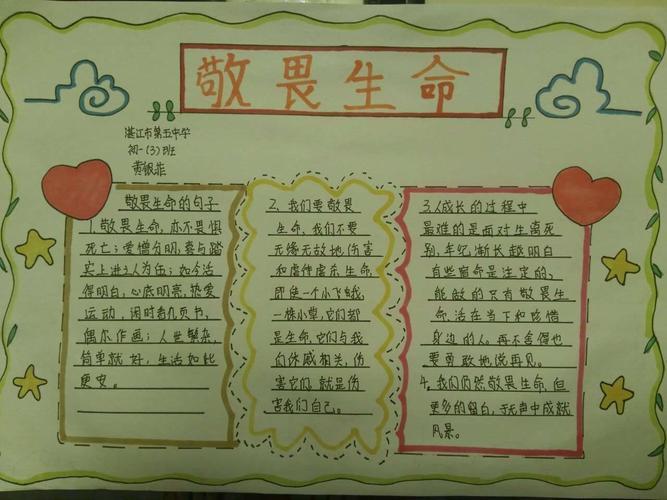 敬畏生命
湛江市第五中学
初一(3)班
黄银菲
敬畏生命的句子
1.敬畏生命,亦不畏惧
死亡;爱憎分明,喜与踏
实上进之人为伍;如今活
得明白,心底明亮,热爱
运动,闲时看几页书,
偶尔作画;人世繁杂,
简单就好,生活如此
更安。
2、我们要敬畏
生命,我们不要
无缘无故地,伤害
和虐待虐杀生命,
即使一个小飞蛾,
一株小草,它们都
是生命,它们与我
们休戚相关,伤
害它们,就是伤
害我们自己。
3.人成长的过程中
最难的是面对生离死
别,年纪渐长越明白
有些宿命是注定的、
能做的只有敬畏生
命.活在当下和珍惜
身边的人。再不舍得也
要勇敢地说再见。
4、我们仍然敬畏生命,但
更多的留白,于无声中成就
风景。